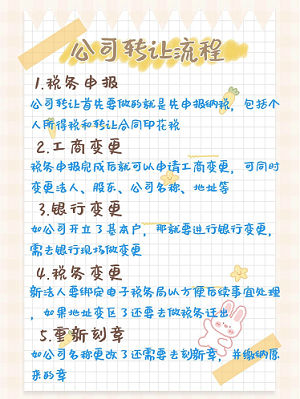 公司转让流程
1.税务申报
公司转让首先要做的就是先申报纳税，包括个
人所得税和转让合同印花税
2.工商变更
税务申报完成后就可以申请工商变更，可同时
变更法人、股东、公司名称、地址等
3.银行变更
如公司开立了基本户，那就要进行银行变更，
需去银行现场做变更
4.税务变更
新法人要绑定电子税务局以方便后续事宜处理
，如果地址变区了还要去做税务迁出
5.重新刻章
如公司名称更改了还需要去刻新章，并缴纳原
来的章